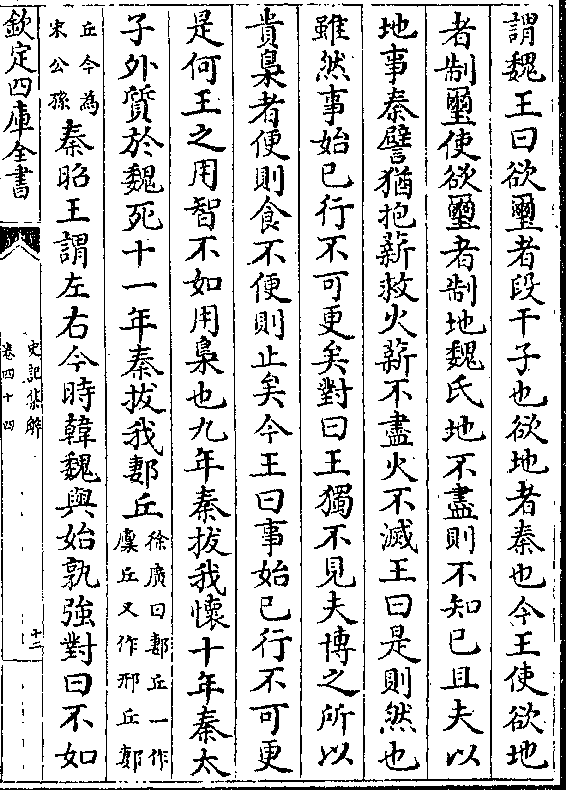 謂魏王曰欲璽者段干子也欲地者秦也今王使欲地
者制璽使欲璽者制地魏氏地不盡則不知已且夫以
地事秦譬猶抱薪救火薪不盡火不滅王曰是則然也
雖然事始已行不可更矣對曰王獨不見夫博之所以
貴梟者便則食不便則止矣今王曰事始已行不可更
是何王之用智不如用梟也九年秦拔我懷十年秦太
子外質於魏死十一年秦拔我郪丘徐廣曰郪丘一作廩丘又作邢丘鄭
丘今為宋公孫秦昭王謂左右今時韓魏與始孰強對曰不如
欽定四庫全書
史記集解
卷四十四
十二